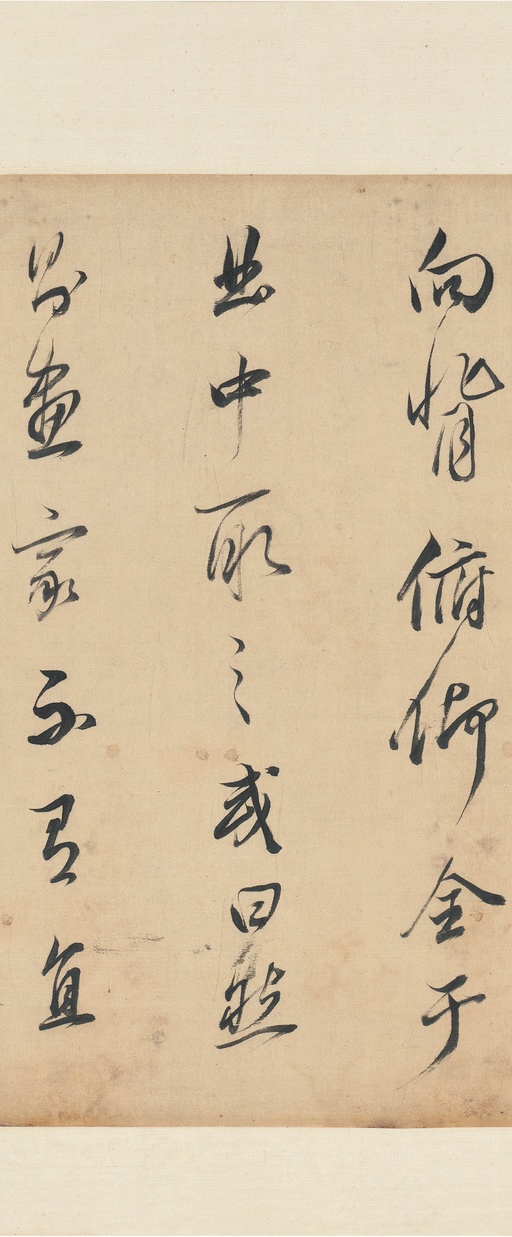 向背俯仰全于
曲中取之或曰然
則畫家不有直